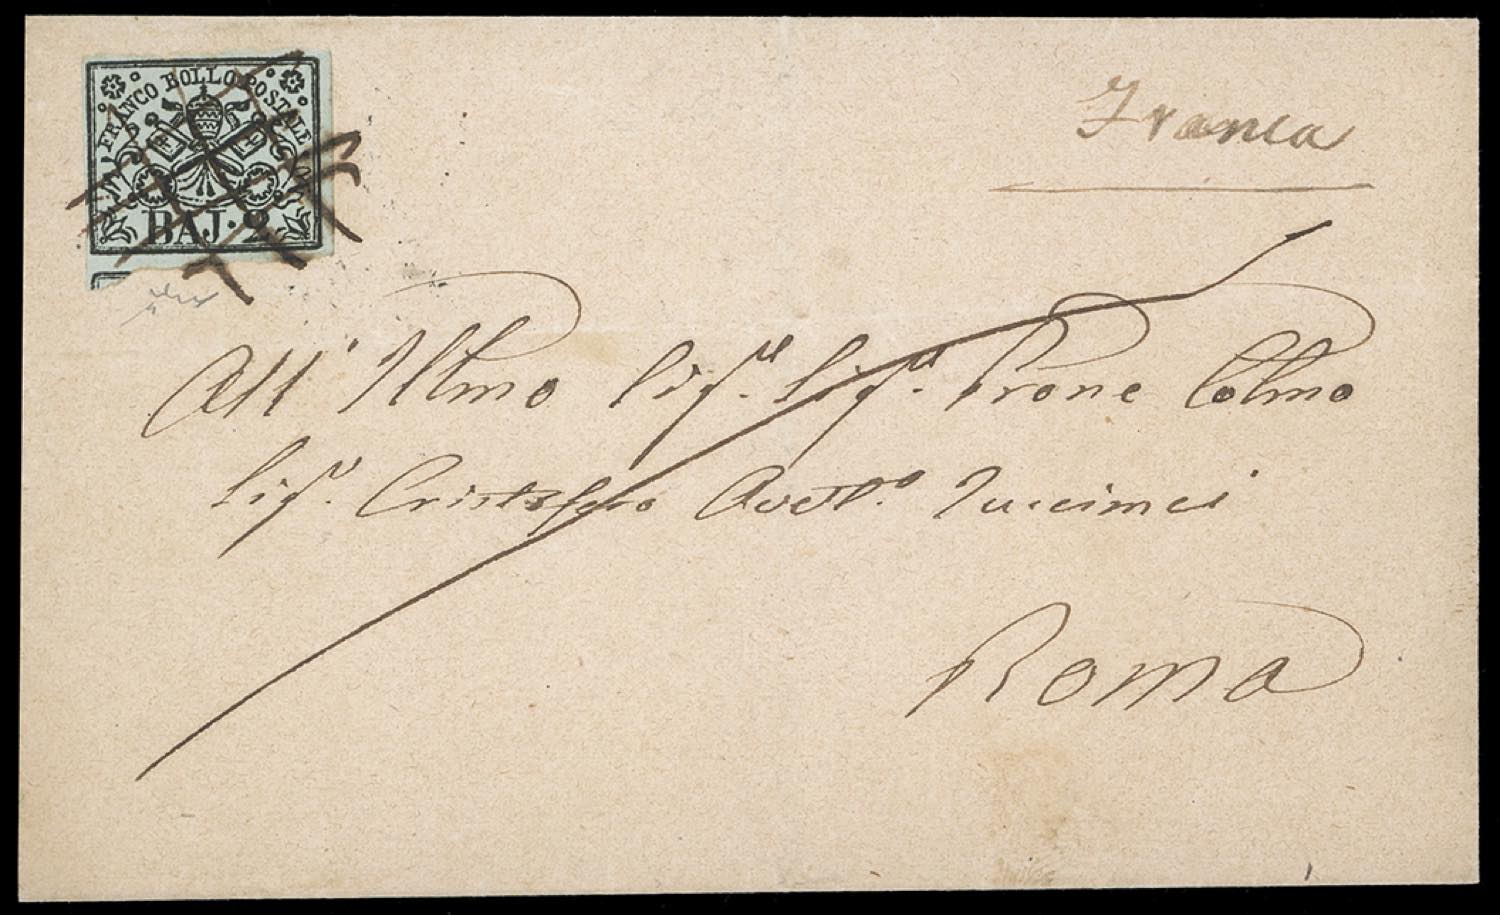 FRANCO BOLLO POSTALE
BAJ. 2
Franca
All' Illmo Sigre Sigre Prone Colmo
Sigr. Cristoforo Avvto. Tuccimei
Roma